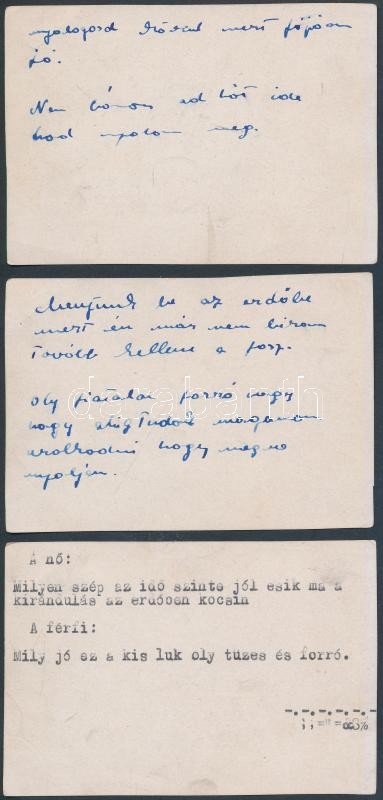 nyalogasd
jó.
Nem bánom ad hát ide
had nyalom meg.
Menjünk be az erdőbe
mert én már nem birom
Tovább kellene a fasz.
oly fiatalan forró vagy
hogy alig Tudok magamon
uralkodni hogy meg ne
nyaljam.
darabanth
A nő:
Milyen szép az idő szinte jól esik ma a
kirándulás az erdőben kocsin
A férfi:
Mily jó ez a kis luk oly tuzes és forró.
-.-.-.-.-.-